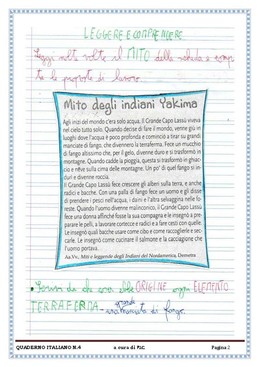 LEGGERE E COMPRENDERE
Leggi molte volte il MITO della scheda e comple
ta le proposte di lavoro.
Mito degli indiani Yakima
Agli inizi del mondo c'era solo acqua. Il Grande Capo Lassù
viveva nel cielo tutto solo. Quando decise di fare il mondo, venne giù in
luoghi dove l'acqua è poco profonda e cominciò a tirar su grandi
manciate di fango, che divennero la terraferma. Fece un mucchio
di fango altissimo che, per il gelo, divenne duro e si trasformò in
montagne. Quando cadde la pioggia, questa si trasformò in ghiac-
cio e neve sulla cima delle montagne. Un po' di quel fango si in-
durì e divenne roccia.
Il Grande Capo Lassù fece crescere gli alberi sulla terra, e anche
radici e bacche. Con una palla di fango fece un uomo e gli disse
di prendere i pesci nell'acqua, i daini e l'altra selvaggina nelle fo-
reste. Quando l'uomo divenne malinconico, il Grande Capo Lassù
fece una donna affinché fosse la sua compagna e le insegnò a pre-
parare le pelli, a lavorare cortecce e radici e a fare cesti con quelle.
Le insegnò quali bacche usare come cibo e come raccoglierle e sec-
carle. Le insegnò come cucinare il salmone e la cacciagione che
l'uomo portava.
Aa.Vv., Miti e leggende degli Indiani del Nordamerica, Demetra
da che cosa ebbe ORIGINE ogni ELEMENTO
TERRAFERMA grande manciata di fango.
QUADERNO ITALIANO N.4 a cura di Pagina 2